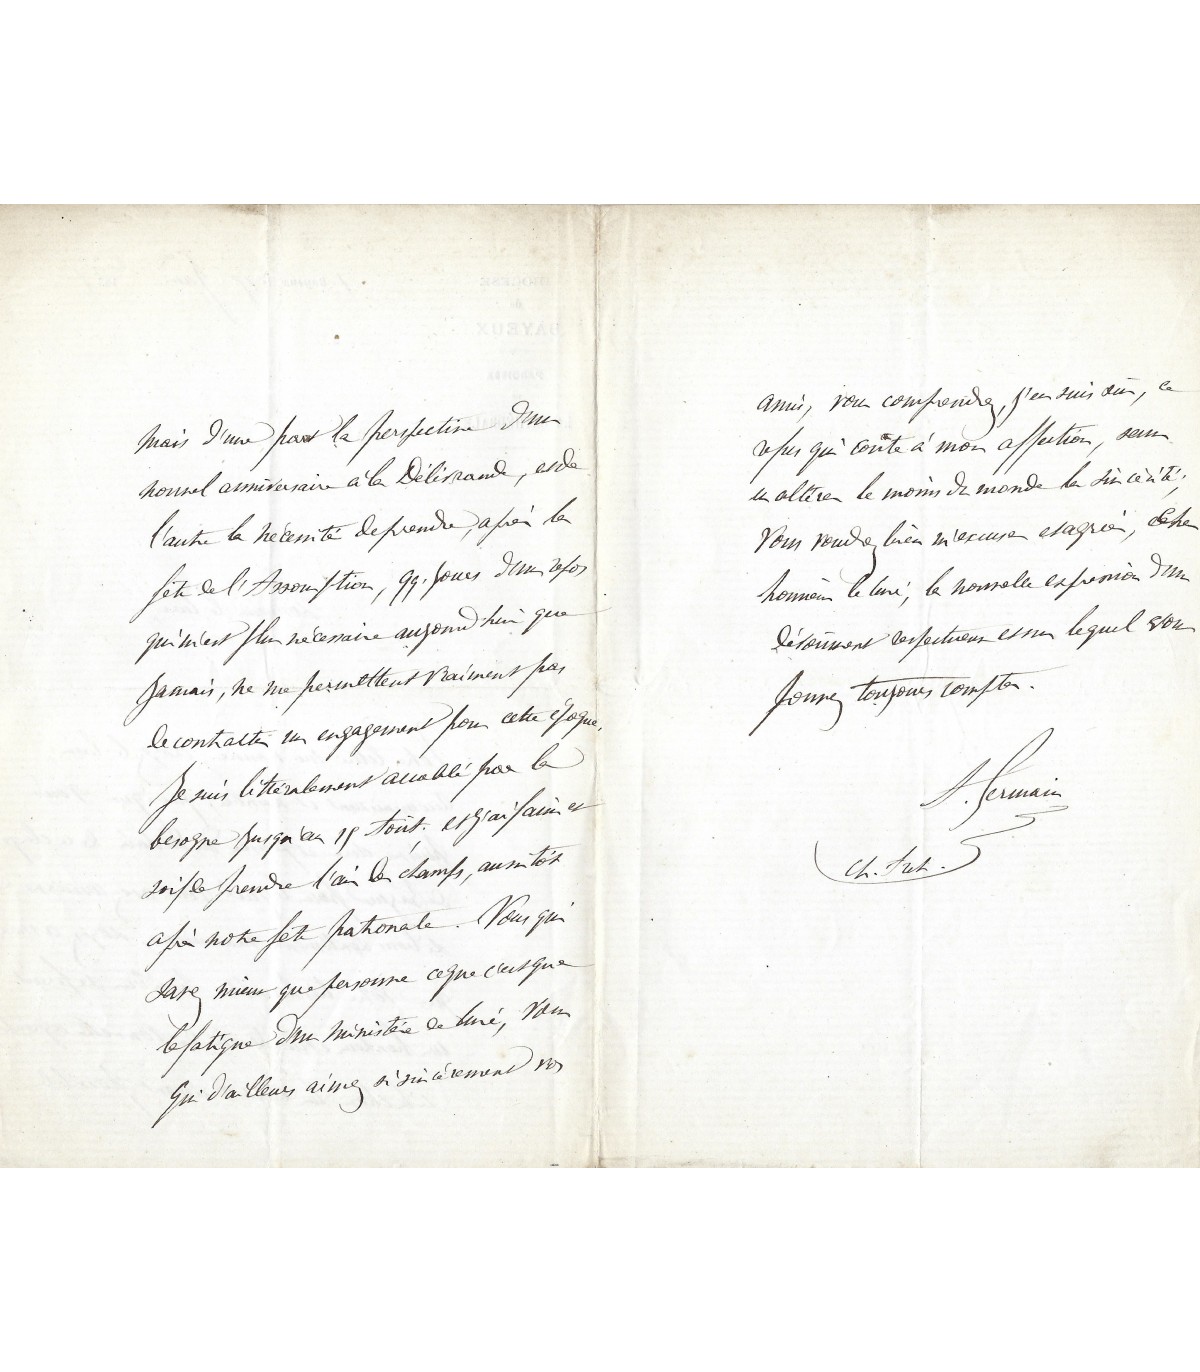 mais d'une part la perspective d'un
nouvel anniversaire à la Délivrande, et de
l'autre la nécessité de prendre, après la
fête de l'Assomption, qq. jours d'un repos
qui m'est plus nécessaire aujourd'hui que
jamais, ne me permettent vraiment pas
de contracter un engagement pour cette époque.
Je suis littéralement accablé par la
besogne jusqu'au 15 Août. et j'ai faim et
soif de prendre l'air des champs, aussitôt
après notre fête patronale. Vous qui
savez mieux que personne ce que c'est que
la fatigue d'un ministère de curé, vous
qui d'ailleurs aimez si sincèrement vos
amis, vous comprendrez, j'en suis sûr, ce
refus qui coûte à mon affection, sans
en altérer le moins du monde la sincérité;
vous voudrez bien m'excuser et agréer,
Monsieur le Curé, la nouvelle expression d'un
dévouement respectueux et sur lequel vous
pouvez toujours compter.
A. Germain
DIOCÈSE
de
BAYEUX